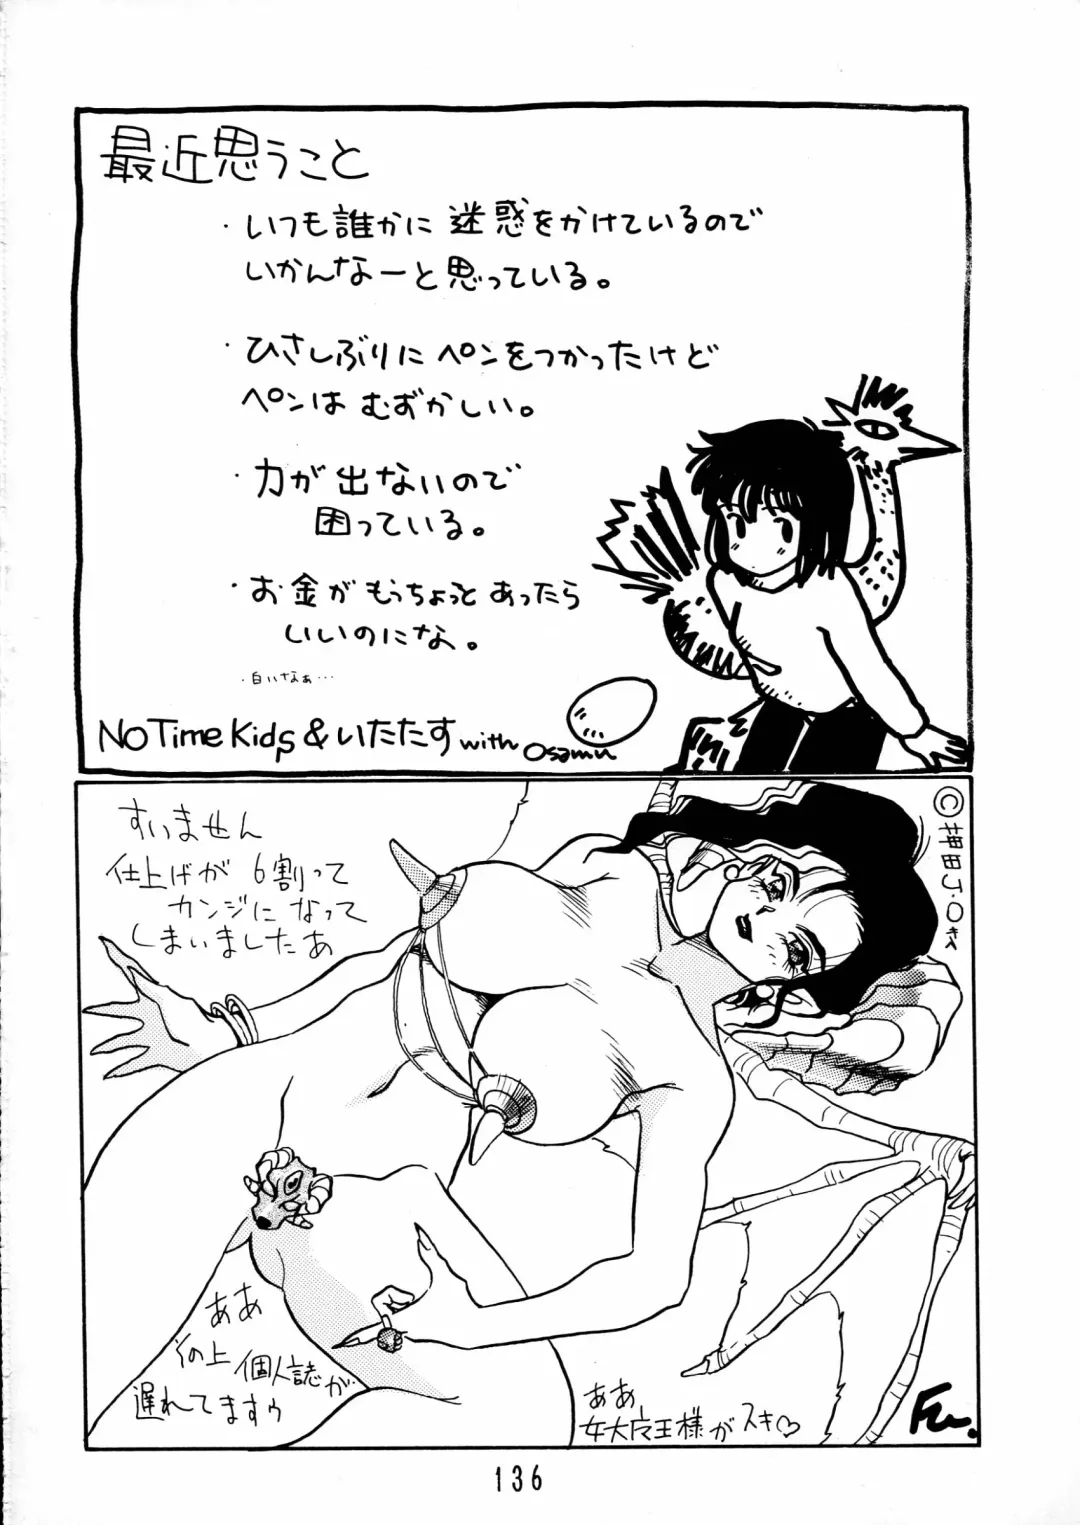 最近思うこと
・いつも誰かに迷惑をかけているので
いかんなーと思っている。
・ひさしぶりにペンをつかったけど
ペンはむずかしい。
・力が出ないので
困っている。
・お金がもうちょっとあったら
いいのにな。
・白いなぁ…
NO Time Kids & いたたす with Osamu
すいません
仕上げが6割って
カンジになって
しまいましたあ
ああ
その上個人誌が
遅れてますゥ
ああ
女大王様がスキ♡
136